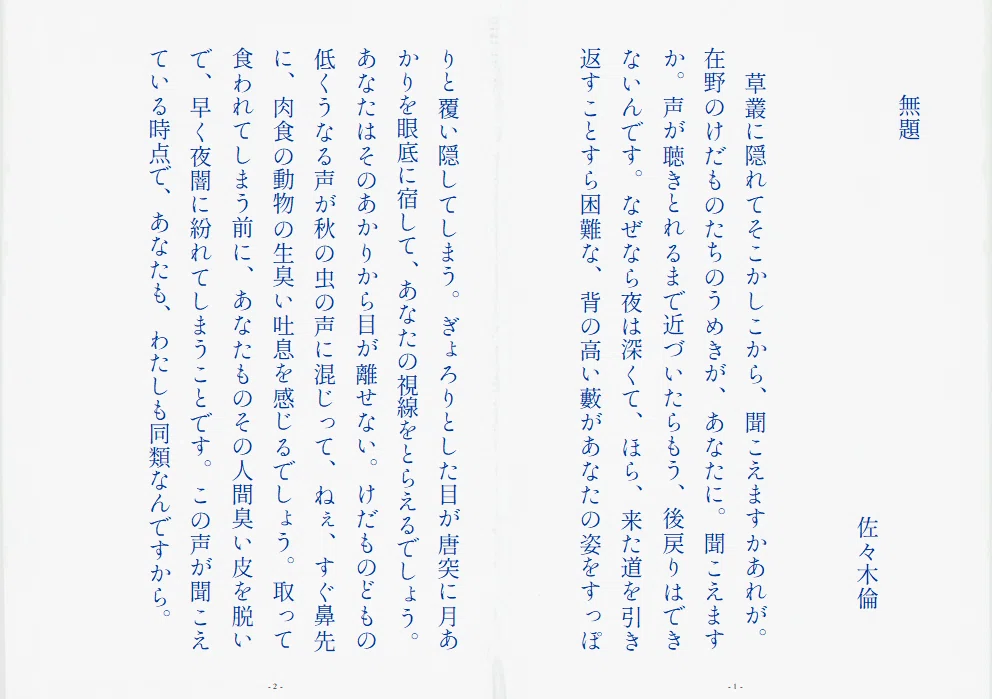 無題
佐々木倫
　草叢に隠れてそこかしこから、聞こえますかあれが。
在野のけだものたちのうめきが、あなたに。聞こえます
か。声が聴きとれるまで近づいたらもう、後戻りはでき
ないんです。なぜなら夜は深くて、ほら、来た道を引き
返すことすら困難な、背の高い藪があなたの姿をすっぽ
- 1 -
りと覆い隠してしまう。ぎょろりとした目が唐突に月あ
かりを眼底に宿して、あなたの視線をとらえるでしょう。
あなたはそのあかりから目が離せない。けだものどもの
低くうなる声が秋の虫の声に混じって、ねぇ、すぐ鼻先
に、肉食の動物の生臭い吐息を感じるでしょう。取って
食われてしまう前に、あなたものその人間臭い皮を脱い
で、早く夜闇に紛れてしまうことです。この声が聞こえ
ている時点で、あなたも、わたしも同類なんですから。
- 2 -